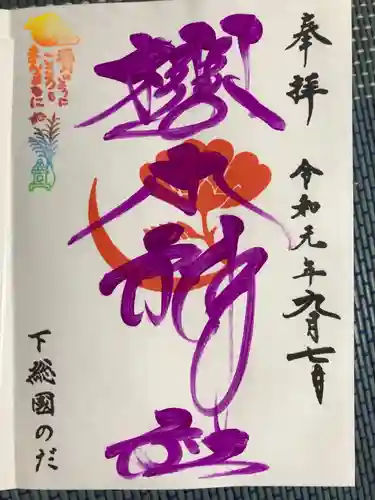 奉拝
令和元年九月七日
櫻木神社
下総國のだ